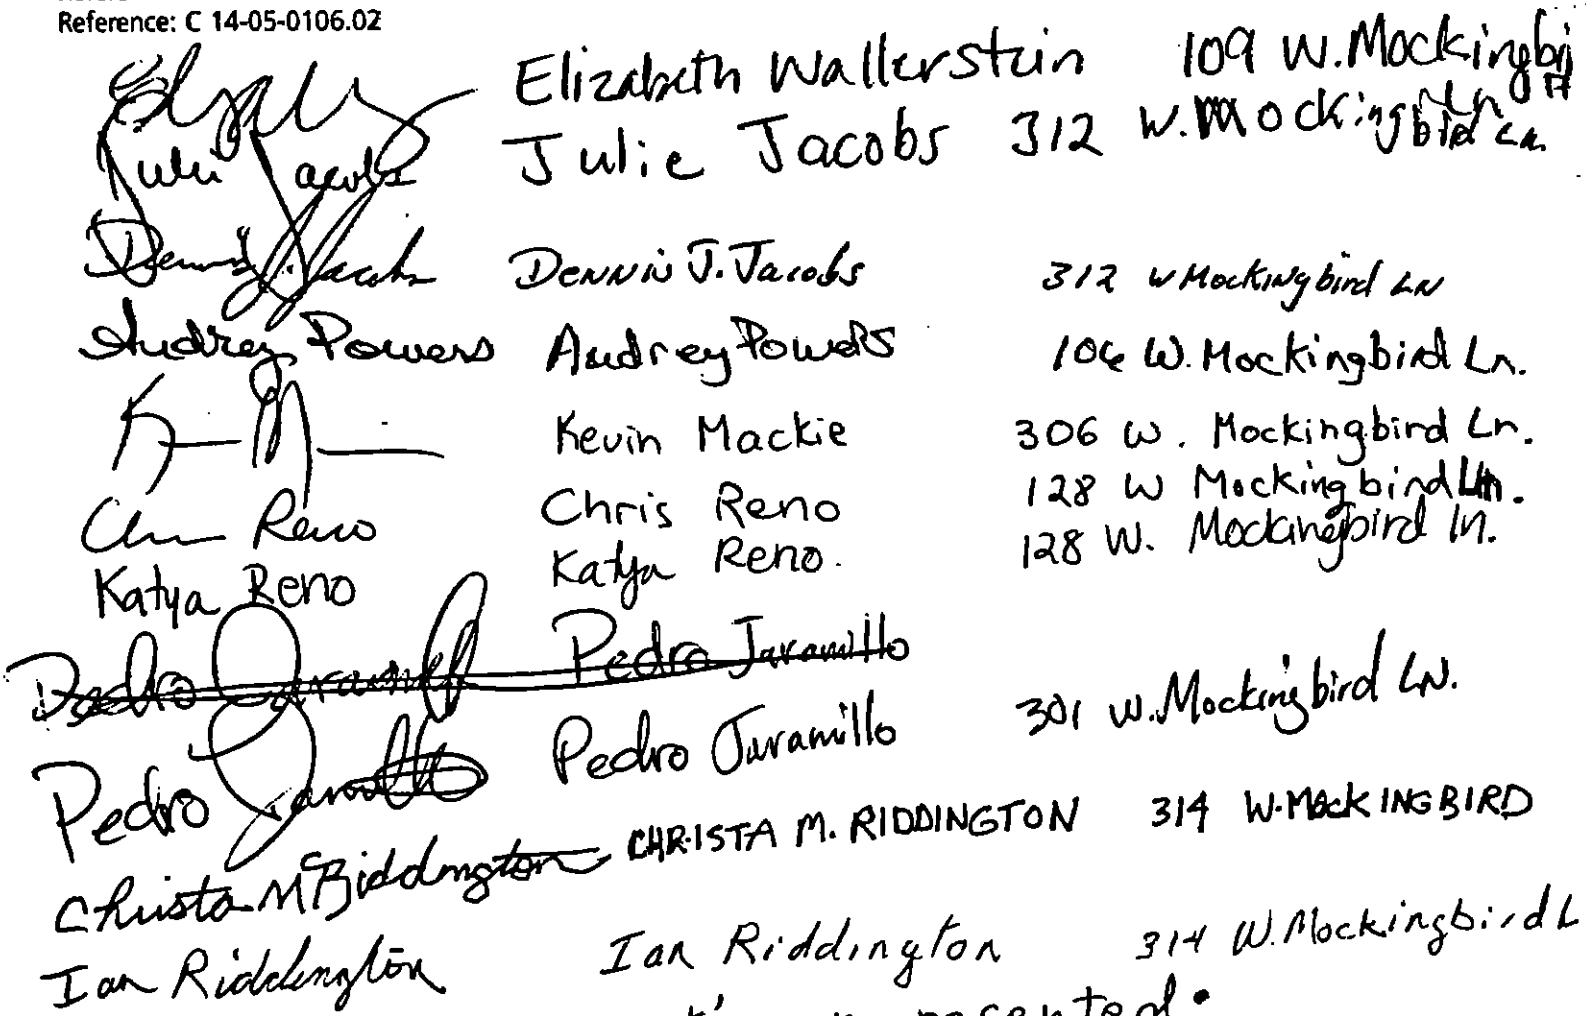 Reference: C 14-05-0106.02
Elizabeth Wallerstein 109 W. Mockingbird Ln
Julie Jacobs Julie Jacobs 312 W. Mockingbird Ln.
Dennis J. Jacobs Dennis J. Jacobs 312 W Mockingbird LN
Audrey Powers Audrey Powers 106 W. Mockingbird Ln.
Kevin Mackie 306 W. Mockingbird Ln.
Chris Reno Chris Reno 128 W Mockingbird Ln.
Katya Reno Katya Reno. 128 W. Mockingbird ln.
Pedro Jaramillo Pedro Jaramillo
Pedro Jaramillo Pedro Jaramillo 301 W. Mockingbird LN.
Christa M Riddington CHRISTA M. RIDDINGTON 314 W. MOCKINGBIRD
Ian Riddington Ian Riddington 314 W. Mockingbird L